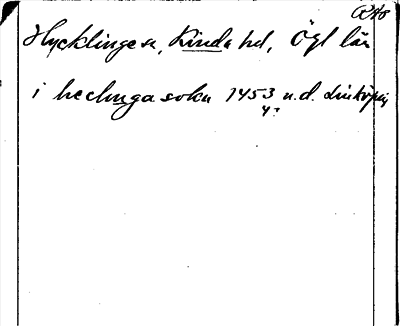 RA8
Hycklinge sn, Kinda hd, Ögl län
i heclinga sokn 1453 u.d. Linköping
4/7